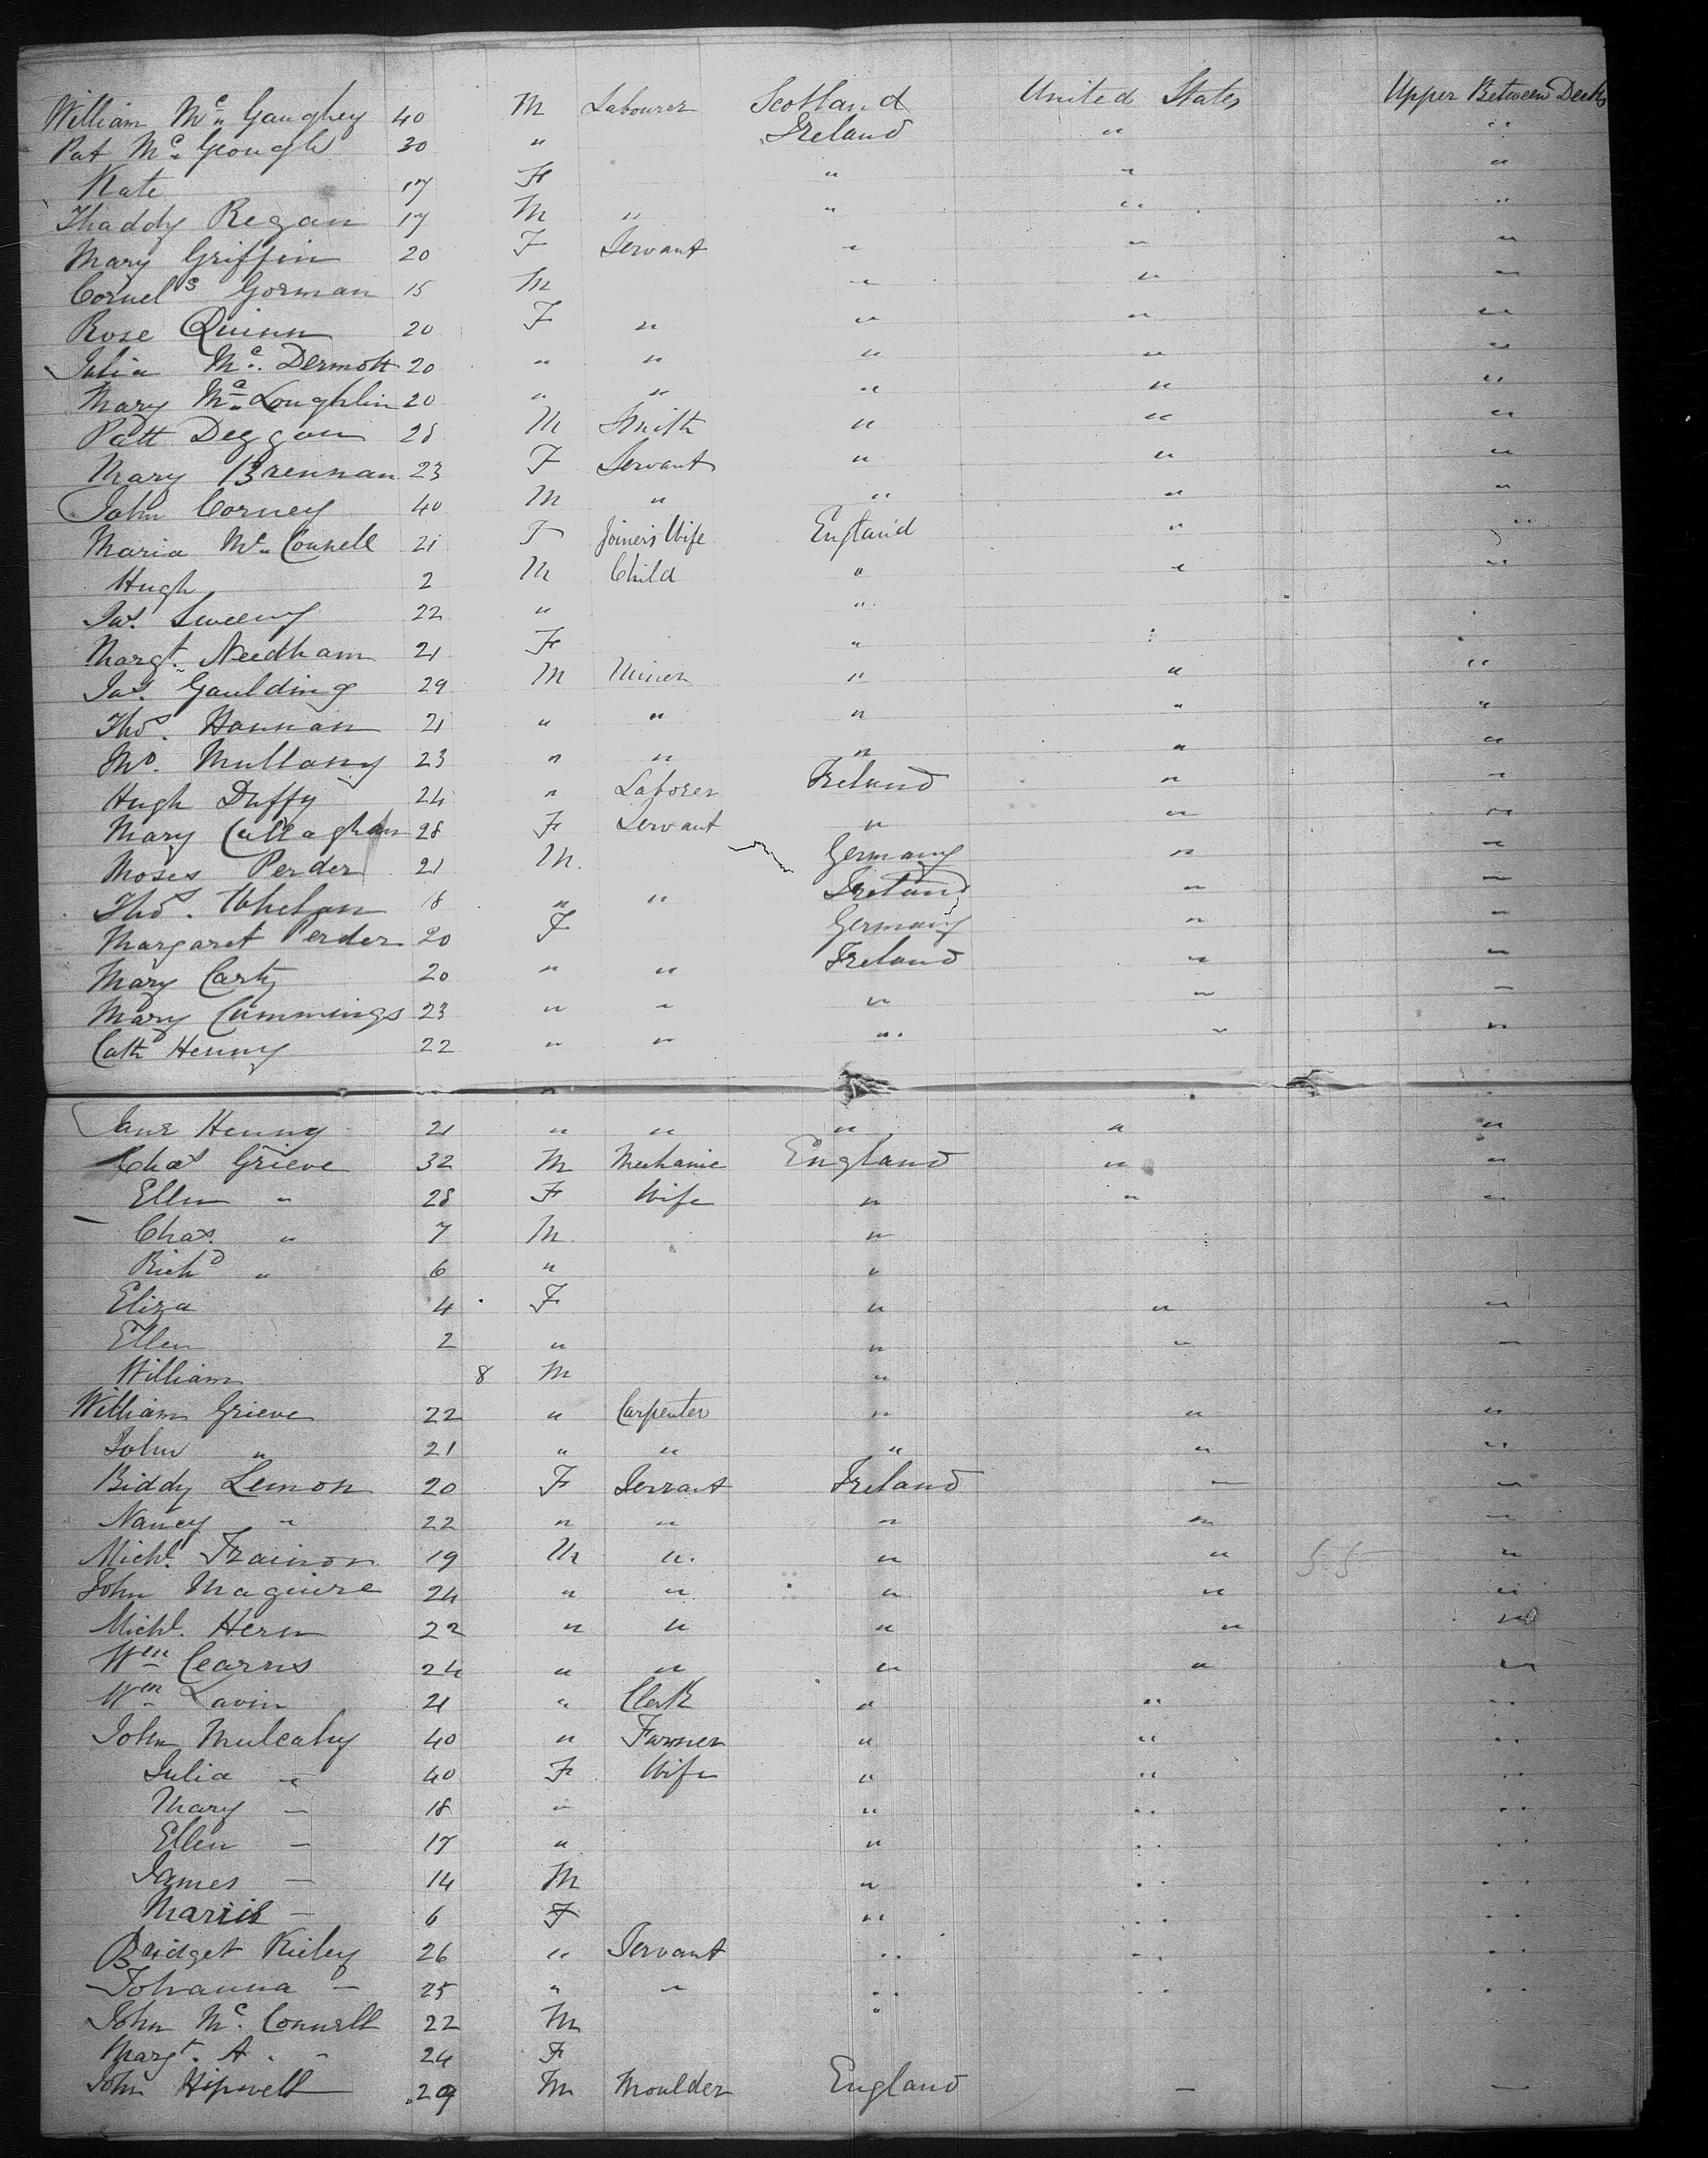 William Mc Gaughey 40 M Labourer Scotland United States Upper Between Decks
Pat Mc Geough 30 " Ireland " "
Kate 17 F " " "
Thaddy Regan 17 M " " " "
Mary Griffin 20 F Servant " " "
Cornels Gorman 15 M " " "
Rose Quinn 20 F " " " "
Julia Mc Dermott 20 " " " " "
Mary Mc Loughlin 20 " " " " "
Patt Deggan 28 M Smith " " "
Mary Brennan 23 F Servant " " "
John Corney 40 M " " " "
Maria Mc Connell 21 F Joiners Wife England " "
Hugh 2 M Child " " "
Jas. Sweeny 22 " "
Margt. Needham 21 F " "
Jas. Gaulding 29 M Miner " " "
Thos. Hannan 21 " " " " "
Mo. Mullany 23 " " " " "
Hugh Duffy 24 " Laborer Ireland " "
Mary Callaghan 28 F Servant " " "
Moses Perder 21 M. Germany " "
Thos. Whelan 18 " " Ireland " "
Margaret Perder 20 F Germany " "
Mary Carty 20 " " Ireland " "
Mary Cummings 23 " " " " "
Cath Henny 22 " " " " "
"
Jane Henny 21 " " " " "
Chas Grieve 32 M Mechanic England " "
Ellen " 28 F Wife " " "
Chas. " 7 M "
Richd " 6 " "
Eliza 4 F " " "
Ellen 2 " " " "
William 8 M "
William Grieve 22 " Carpenter " " "
John " 21 " " " " "
Biddy Lemon 20 F Servant Ireland " "
Nancy " 22 " " " " "
Michl. Trainor 19 M " " " 55 "
John Maguire 24 " " " " "
Michl. Hern 22 " " " " "
Wm Cearns 24 " " " " "
Wm Lavin 21 " Clerk " " "
John Mulcahy 40 " Farmer " " "
Julia " 40 F Wife " " "
Mary — 18 " " " "
Ellen — 17 " " " "
James — 14 M " " "
6 F " " "
Bridget Kieley 26 " Servant " " "
Johanna — 25 " " " " "
John Mc. Connell 22 M "
Margt. A. " 24 F
John Hipwell 29 M Moulder England — —